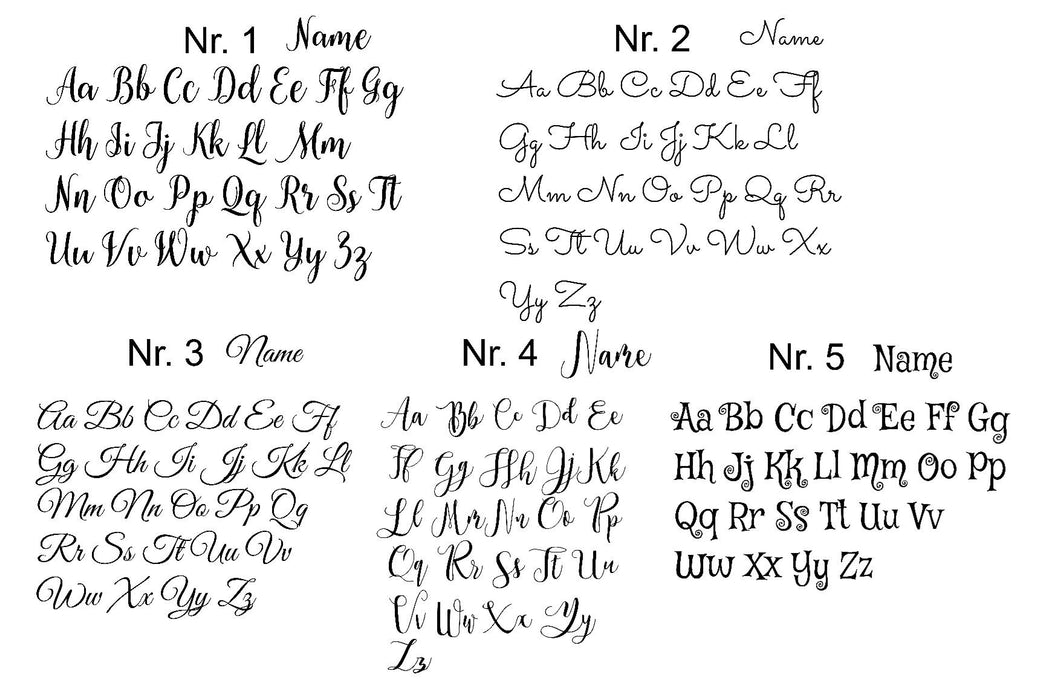 Nr. 1 Name
Aa Bb Cc Dd Ee Ff Gg
Hh Ii Jj Kk Ll Mm
Nn Oo Pp Qq Rr Ss Tt
Uu Vv Ww Xx Yy Zz
Nr. 2 Name
Aa Bb Cc Dd Ee Ff
Gg Hh Ii Jj Kk Ll
Mm Nn Oo Pp Qq Rr
Ss Tt Uu Vv Ww Xx
Yy Zz
Nr. 3 Name
Aa Bb Cc Dd Ee Ff
Gg Hh Ii Jj Kk Ll
Mm Nn Oo Pp Qq
Rr Ss Tt Uu Vv
Ww Xx Yy Zz
Nr. 4 Name
Aa Bb Cc Dd Ee
Ff Gg Hh Jj Kk
Ll Mm Nn Oo Pp
Qq Rr Ss Tt Uu
Vv Ww Xx Yy
Zz
Nr. 5 Name
Aa Bb Cc Dd Ee Ff Gg
Hh Jj Kk Ll Mm Oo Pp
Qq Rr Ss Tt Uu Vv
Ww Xx Yy Zz